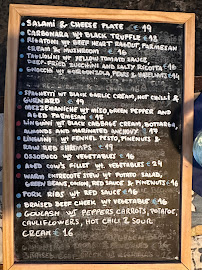 SALAMI & CHEESE PLATE € 19
CARBONARA W/ BLACK TRUFFLE € 19
RIGATONI W/ BEEF HEART RAGOUT, PARMESAN
CREAM & MUSHROOM € 16
TAGLIOLINI W/ YELLOW TOMATO SAUCE,
DEEP-FRIED ZUCCHINI AND SALTY RICOTTA € 16
GNOCCHI W/ GORGONZOLA, PEARS & WALNUTS €14
SPAGHETTI W/ BLACK GARLIC CREAM, HOT CHILLI &
MEZZEMANICHE W/ MISO, GREEN PEPPER AND
AGED PARMESAN € 18
LINGUINI W/ BLACK CABBAGE CREAM, BOTTARGA,
ALMONDS AND MARINATED ANCHOVY
LINGUINI W/ FENNEL PESTO, PINENUTS &
RAW RED SHRIMPS € 19
OSSOBUCO W/ VEGETABLES € 16
AGED COW'S FILLET W/ VEGETABLES € 24
WARM ENTRECOTE STEW W/ POTATO SALAD,
GREEN BEANS, ONION, RED SAUCE & PINENUTS € 16
PORK RIBS W/ RED SAUCE € 16
BRAISED BEEF CHEEK W/ VEGETABLE € 16
GOULASH W/ PEPPERS CARROTS, POTATOE,
CAULIFLOWERS, HOT CHILI & SOUR
CREAM € 16